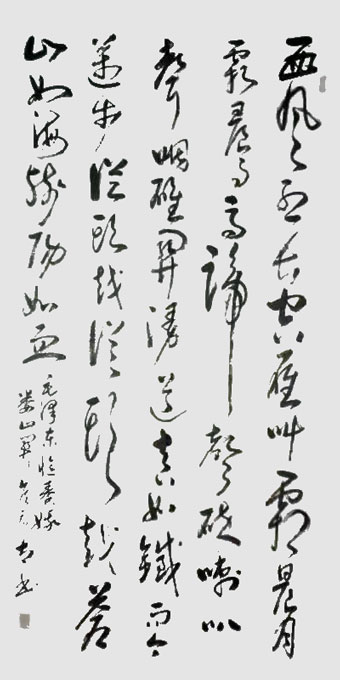 西風烈長空雁叫霜晨月
霜晨月馬蹄聲碎喇叭
聲咽雄關漫道真如鐵而今
邁步從頭越從頭越蒼
山如海殘陽如血
毛澤東憶秦娥
婁山關 書